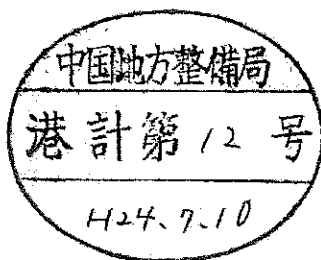 中国地方整備局
港計第12号
H24.7.10